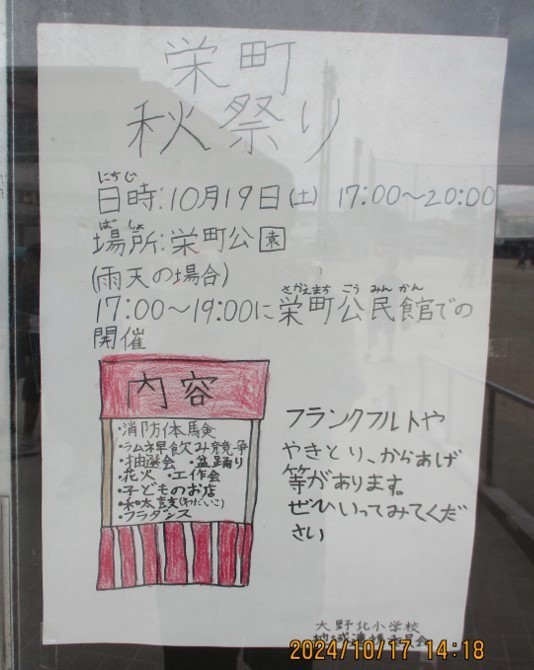 栄町
秋祭り
にちじ
日時:10月19日(土) 17:00～20:00
ばしょ
場所:栄町公園
(雨天の場合)
さかえまち こう みん かん
17:00～19:00に栄町公民館での
開催
内容
・消防体験
・ラムネ早飲み競争
・抽選会 ・盆踊り
・花火 ・工作会
・子どものお店
・和太鼓(わだいこ)
・フラダンス
フランクフルトや
やきとり、からあげ
等があります。
ぜひいってみてくだ
さい
大野北小学校
地域連携委員会
2024/10/17 14:18